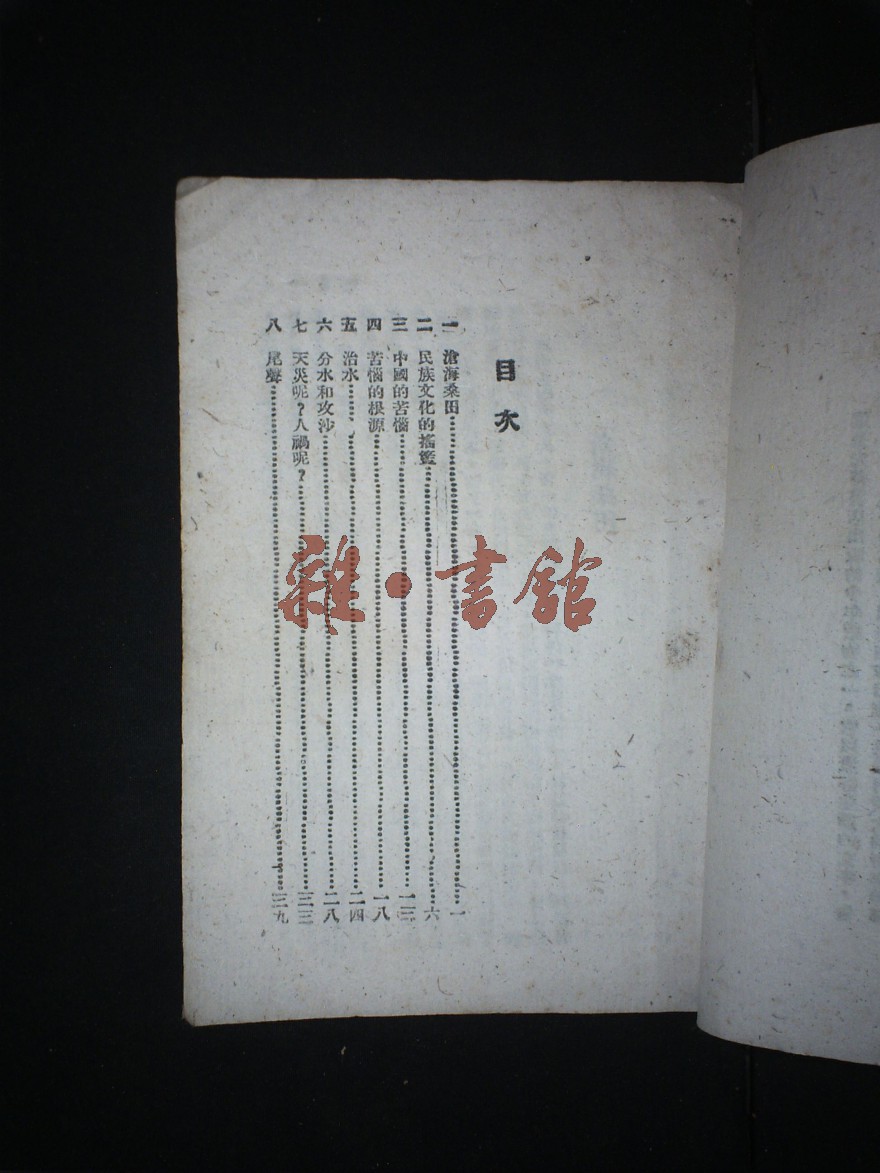 目次
一 滄海桑田……一
二 民族文化的搖籃……六
三 中國的苦惱……一三
四 苦惱的根源……一八
五 治水……二四
六 分水和攻沙……二八
七 天災呢？人禍呢？……三三
八 尾聲……三九
雜·書館